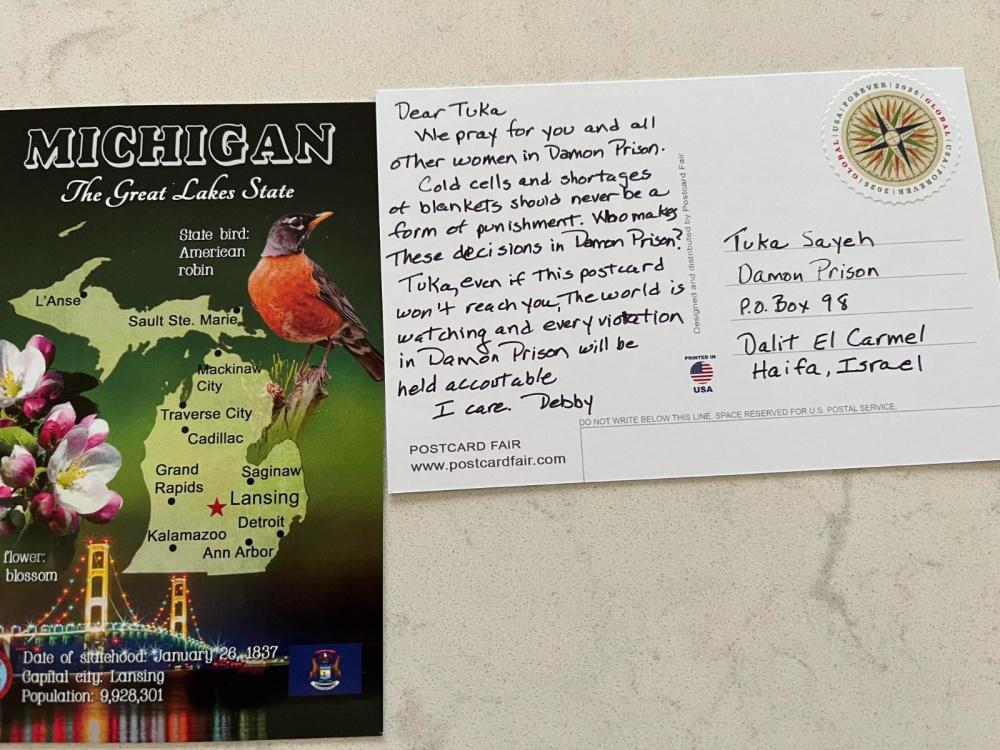 MICHIGAN
The Great Lakes State
State bird:
American
robin
L'Anse
Sault Ste. Marie
Mackinaw
City
Traverse City
Cadillac
Grand
Rapids
Saginaw
Lansing
Detroit
Kalamazoo
Ann Arbor
flower:
blossom
Date of statehood: January 26, 1837
Capital city: Lansing
Population: 9,928,301
Dear Tuka
We pray for you and all
other women in Damon Prison.
Cold cells and shortages
of blankets should never be a
form of punishment. Who makes
these decisions in Damon Prison?
Tuka, even if this postcard
won't reach you, The world is
watching and every violation
in Damon Prison will be
held accoutable
I care. Debby
POSTCARD FAIR
www.postcardfair.com
Designed and distributed by Postcard Fair
PRINTED IN
USA
GLOBAL | USA | FOREVER | 2025 | GLOBAL | USA | FOREVER | 2025
Tuka Sayeh
Damon Prison
P.O. Box 98
Dalit El Carmel
Haifa, Israel
DO NOT WRITE BELOW THIS LINE. SPACE RESERVED FOR U.S. POSTAL SERVICE.